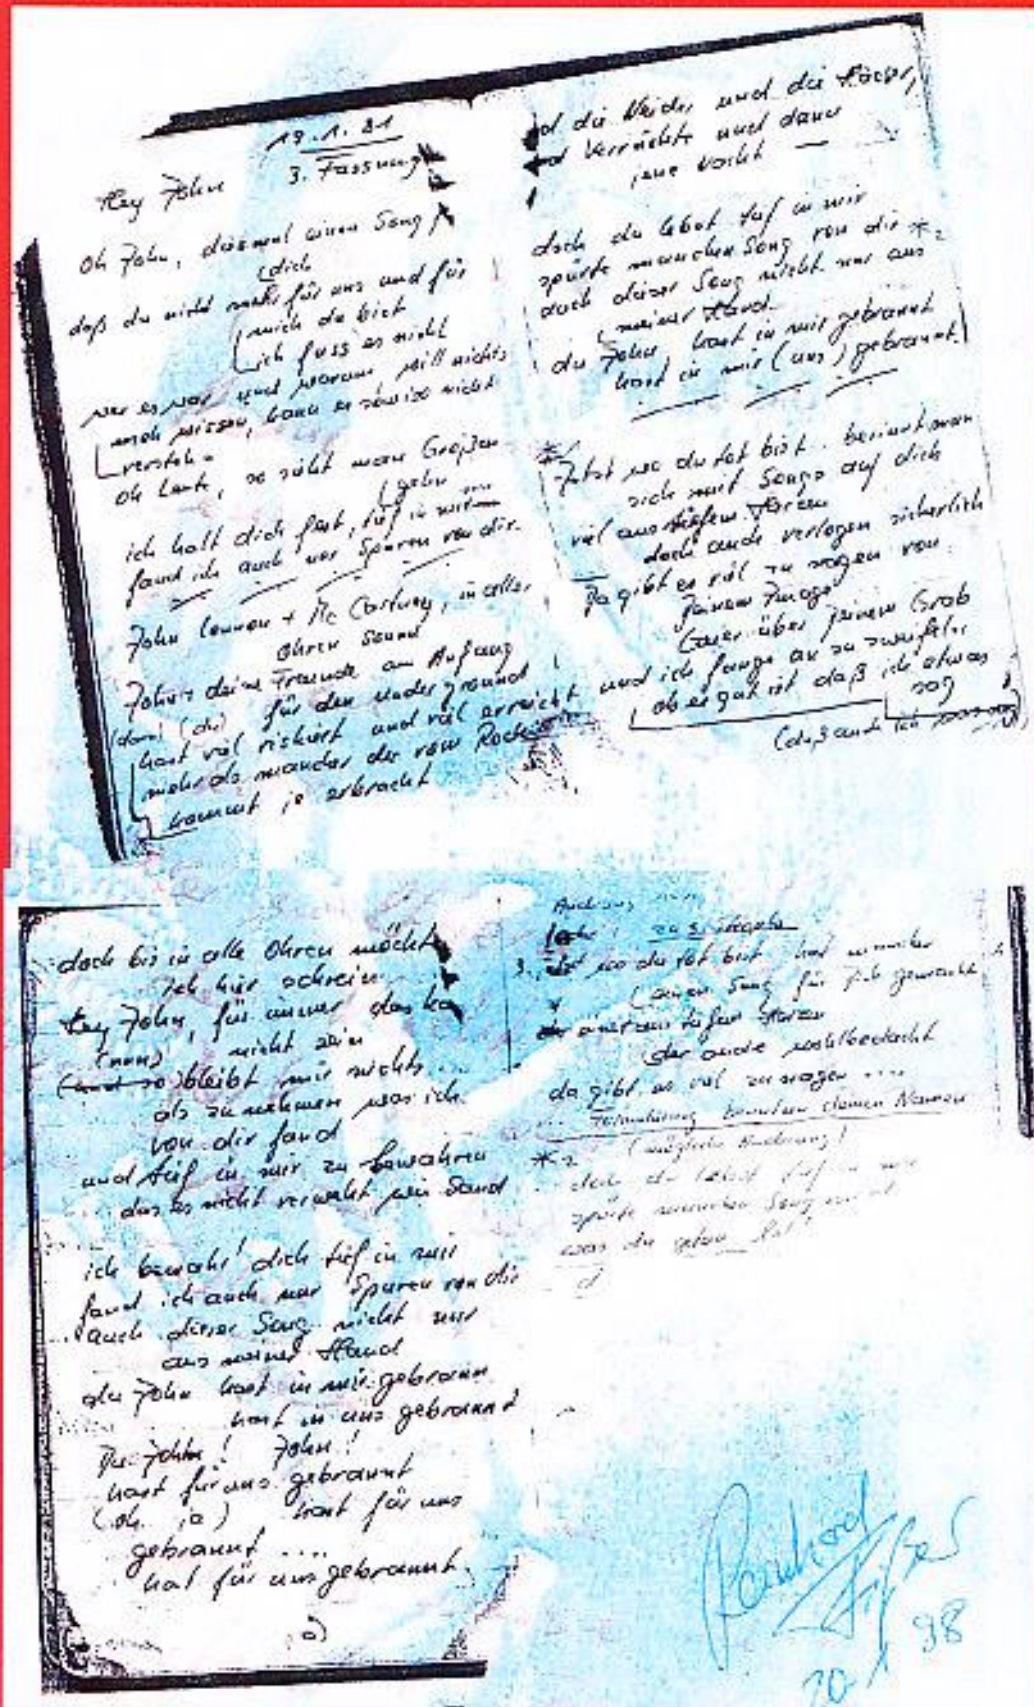 19.1.81
3. Fassung
Hey John
Oh John, diesmal einen Song
(dich
daß du nicht mehr für uns und für
mich da bist
ich fass es nicht
wer es war und warum will nichts
mehr wissen, kann es sowiso nicht
versteh'n
Oh Leute, so sieht man Großen
gehn
ich halt dich fest, tief in mir
fand ich auch nur Spuren von dir.
John Lennon + Mc Cartney, in aller
Ohren Sound
John + deine Freunde am Anfang
für den underground
(dann) (du)
hast viel riskiert und viel erreicht
mehr als mancher der vom Rock
kommt je erbracht
die Neider und die
Verrückte und dann
jene Nacht —
doch du lebst tief in mir
spürte manchen Song von dir *2
auch dieser Song nicht nur aus
meiner Hand
du John, hast in mir gebrannt
hast in mir (uns) gebrannt
*1
Jetzt wo du tot bist.. besinnt man
sich mit Songs auf dich
viel aus tiefem Herzen
doch auch verlogen sicherlich
Da gibt es viel zu sagen von
Deinem Image
Geier über Deinem Grab
und ich fange an zu zweifeln
ob es gut ist daß ich etwas
sag
(daß auch ich
doch bis in alle Ohren möcht
ich hier schrein
Hey John, für immer das ka
nicht sein
(nun)
(und so) bleibt mir nichts..
als zu nehmen was ich
von dir fand
und tief in mir zu bewahren
das es nicht verweht wie Sand
ich bewahr' dich tief in mir
fand ich auch nur Spuren von dir
auch dieser Song nicht nur
aus meiner Hand
du John hast in mir gebrann
hast in uns gebrannt
Du John! John!
hast für uns gebrannt
(oh ja) hast für uns
gebrannt ....
hat für uns gebrannt.
zu 3. Strophe
3. Jetzt wo du tot bist hat mancher
(einen Song für Dich gemacht
einer aus tiefem Herzen
(der andre wohlbedacht
da gibt es viel zu sagen ....
benutzen deinen Namen
*2 (mögliche Änderung)
doch du lebst tief in mir
spürte manchen Song von
was du getan hat!
Reinhard
20. 98